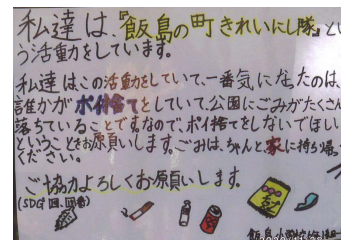 私達は、『飯島の町きれいにし隊』とい
う活動をしています。
私達は、この活動をしていて、一番気になったのは、
誰かがポイ捨てをしていて、公園にごみがたくさん
落ちていることです。なので、ポイ捨てをしないでほしい
ということをお願いします。ごみは、ちゃんと家に持ち帰って
ください。
ご協力よろしくお願いします。